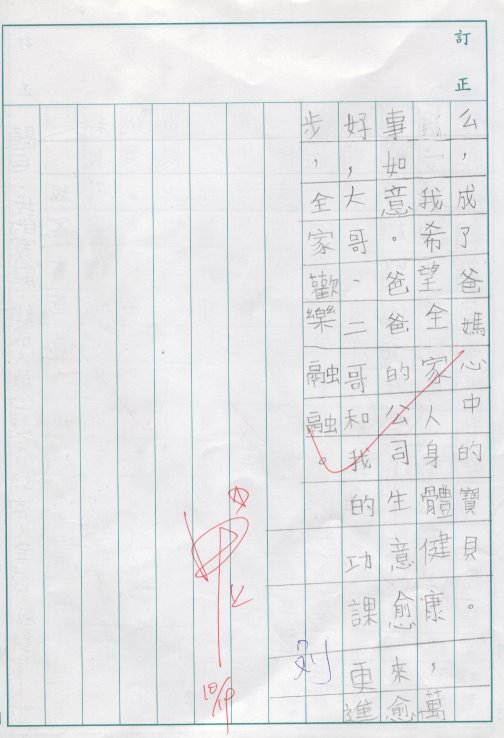 訂正
么，成了爸媽心中的寶貝。
我希望全家人身體健康，萬
事如意。爸爸的公司生意愈來愈
好，大哥、二哥和我的功課更進
步，全家歡樂融融。
甲上
10/19